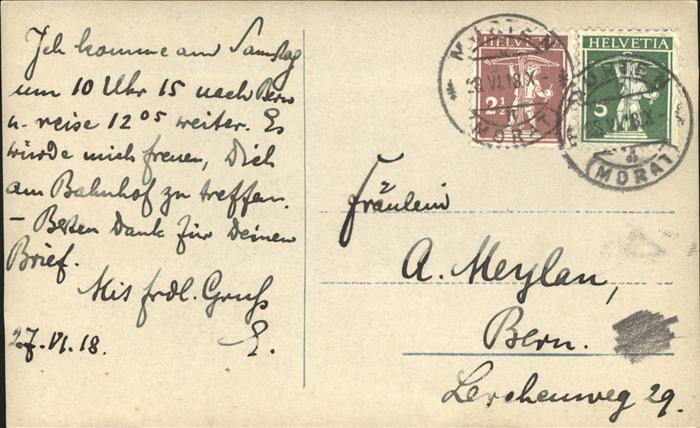 Ich komme am Samstag
um 10 Uhr 15 nach Bern
u. reise 12 05 weiter. Es
würde mich freuen, Dich
am Bahnhof zu treffen.
– Besten Dank für Deinen
Brief.
Mit frdl. Gruss
E.
27. VI. 18.
HELVETIA
2½
HELVETIA
5
MURTEN
28.VI.18.X-
(MORAT)
MURTEN
28.VI.18.X-
(MORAT)
Fräulein
A. Meylan,
Bern.
Lerchenweg 29.